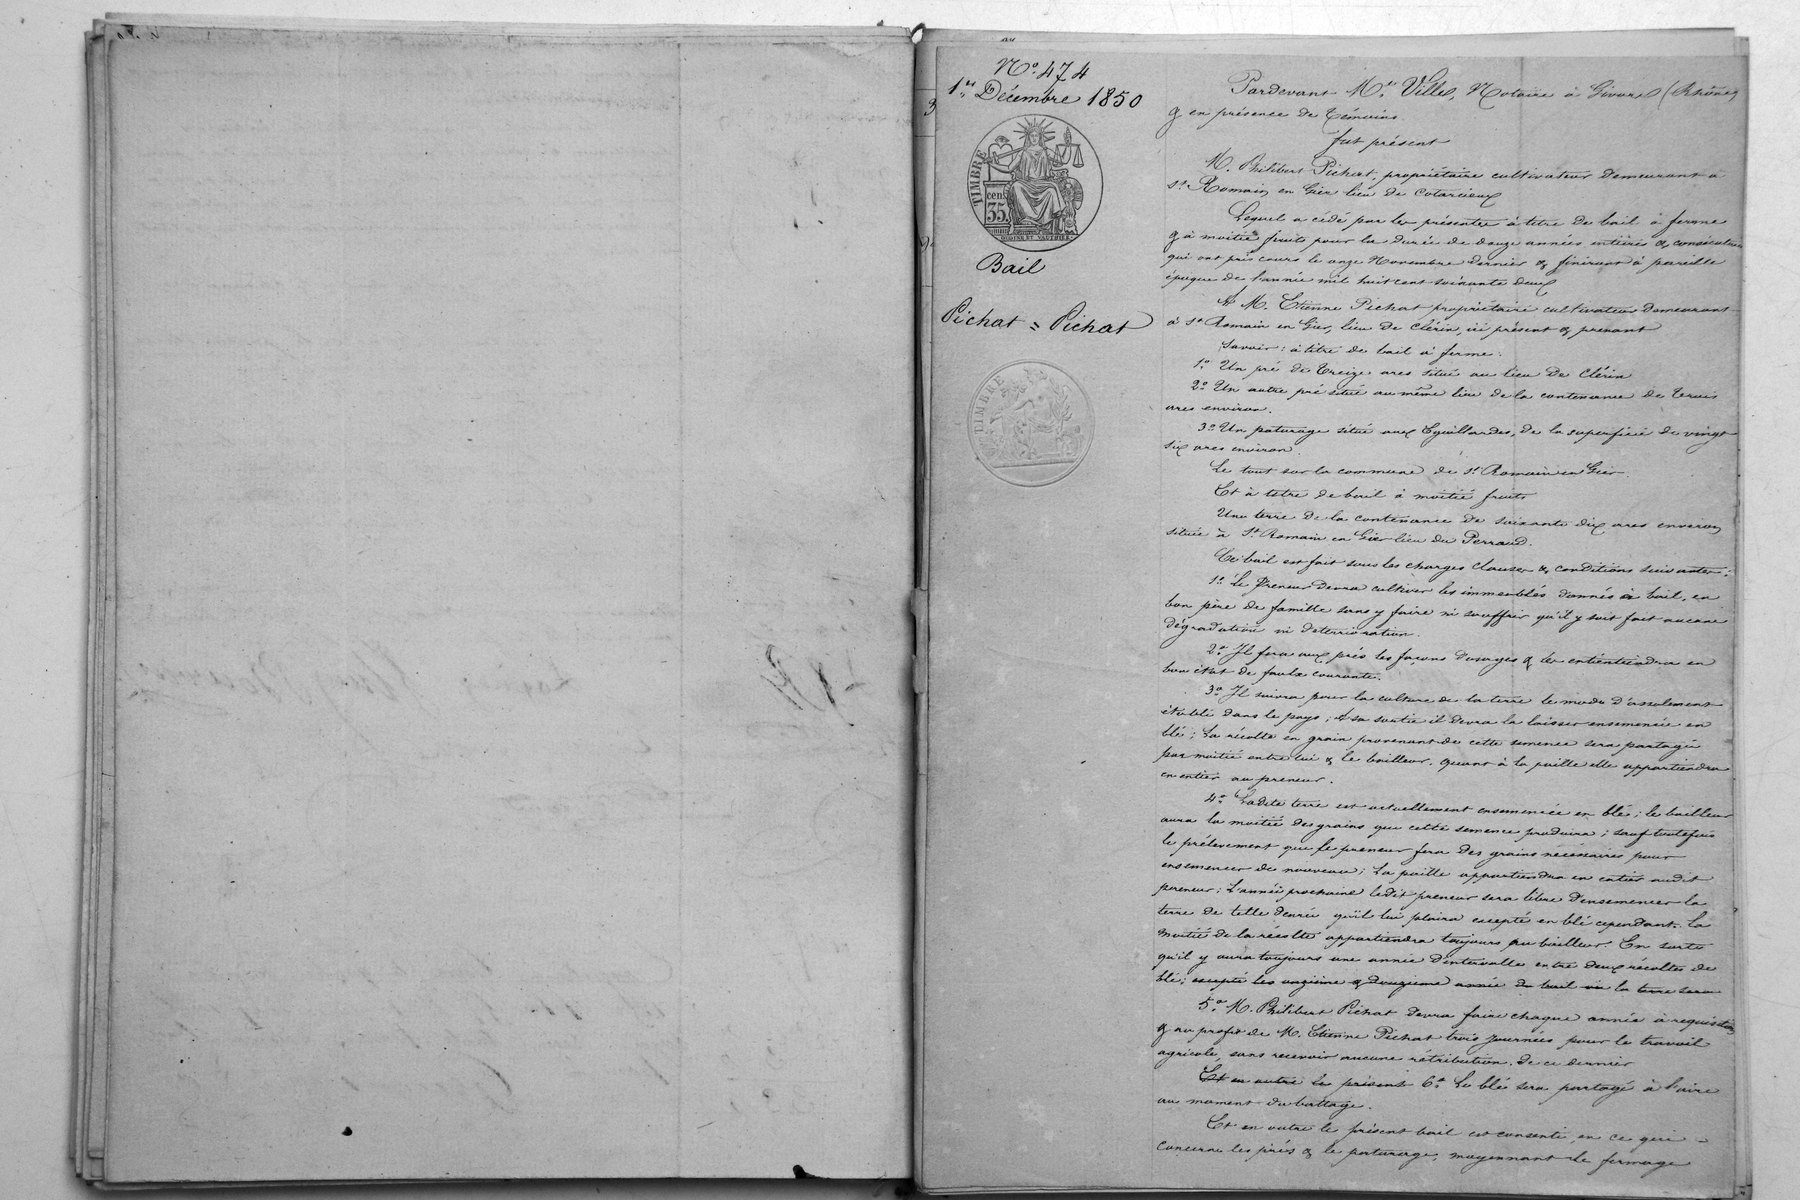 N.° 474
1.er Décembre 1850
TIMBRE
cen.
35.
OUDINE ET VAUTHIER
Bail
Pichat = Pichat
TIMBRE
Pardevant M.e Villes, Notaire à Givors (Rhône)
& en présence de Témoins.
fut présent
M. Philibert Pichat, propriétaire cultivateur demeurant à
St Romain en Gier lieu de Cotarcieux
Lequel a cédé par les présentes à titre de bail à ferme
& à moitié fruits pour la durée de douze années entières & consécutives
qui ont pris cours le onze Novembre dernier & finiront à pareille
époque de l'année mil huit cent soixante deux
A M. Etienne Pichat propriétaire cultivateur demeurant
à St Romain en Gier, lieu de Clérin, ici présent & prenant
Savoir : à titre de bail à ferme :
1.° Un pré de Treize ares situé au lieu de Clérin
2.° Un autre pré situé au même lieu de la contenance de
ares environ.
3.° Un paturage situé aux Eguillardes, de la superficie de vingt
six ares environ.
Le tout sur la commune de St Romain en Gier.
Et à titre de bail à moitié fruits
Une terre de la contenance de soixante dix ares environ
située à St Romain en Gier lieu du Perraud.
Ce bail est fait sous les charges clauses & conditions suivantes :
1.° Le Preneur devra cultiver les immeubles donnés à bail, en
bon père de famille sans y faire ni souffrir qu'il y soit fait aucune
dégradation ni déterrioration.
2.° Il fera aux prés les façons d'usages & les entientiendra en
bon état de faulx courante.
3.° Il suivra pour la culture de la terre le mode d'assolement
établi dans le pays ; à sa sortie il devra la laisser ensemencée en
blé ; La récolte en grain provenant de cette semence sera partagée
par moitié entre lui & le bailleur, quant à la paille elle appartiendra
en entier au preneur.
4.° Ladite terre est actuellement ensemencée en blé ; le bailleur
aura la moitié des grains que cette semence produira ; sauf toutefois
le prélèvement que le preneur fera des grains nécessaires pour
ensemencer de nouveau ; La paille appartiendra en entier audit
preneur ; L'année prochaine ledit preneur sera libre d'ensemencer la
terre de telle denrée qu'il lui plaira excepté en blé cependant. La
moitié de la récolte appartiendra toujours au bailleur. En sorte
qu'il y aura toujours une année d'intervalle entre deux récoltes de
blé ; excepté les onzième & douzième année du bail où la terre sera
5.° M. Philibert Pichat devra faire chaque année à requisition
& au profit de M. Etienne Pichat trois journées pour le travail
agricole, sans recevoir aucune rétribution de ce dernier
Et en outre le présent 6.° Le blé sera partagé à l'aire
au moment du battage.
Et en outre le présent bail est consenti, en ce qui
concerne les prés & le paturage, moyennant le fermage